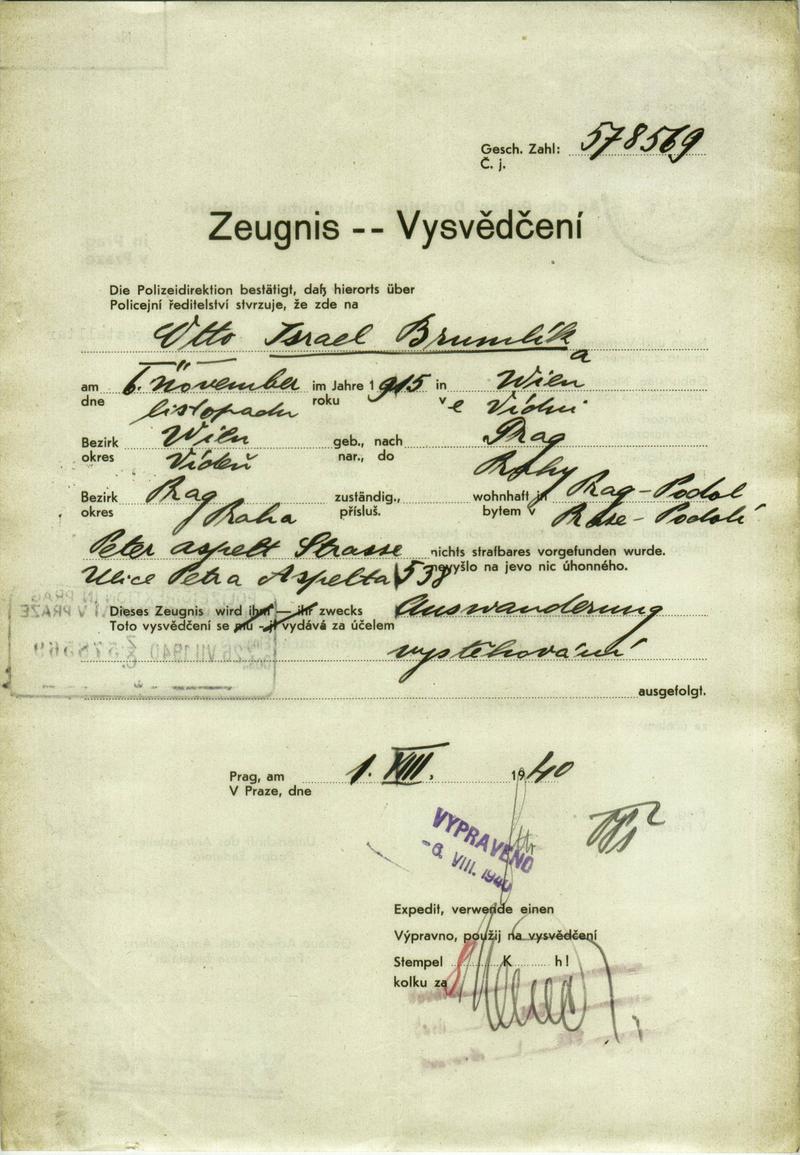 Gesch. Zahl: 578569
Č. j.
Zeugnis -- Vysvědčení
Die Polizeidirektion bestätigt, daß hierorts über
Policejní ředitelství stvrzuje, že zde na
Otto Israel Brumlík
a
am 6. November im Jahre 1915 in Wien
dne listopadu roku v e Vídni
Bezirk Wien geb., nach Prag
okres Vídeň nar., do Prahy
Bezirk Prag zuständig., wohnhaft in Prag-Podol
okres Praha přísluš. bytem v Praze-Podolí
Peter Aspelt Strasse nichts strafbares vorgefunden wurde.
Ulice Petra Aspelta 538 nevyšlo na jevo nic úhonného.
Dieses Zeugnis wird ihm — ihr zwecks Auswanderung
Toto vysvědčení se mu - jí vydává za účelem
vystěhování
ausgefolgt.
Prag, am 1. VIII. 1940
V Praze, dne
VYPRAVENO
-6. VIII. 1940
Expedit, verwende einen
Výpravno, použij na vysvědčení
Stempel K h!
kolku za 8